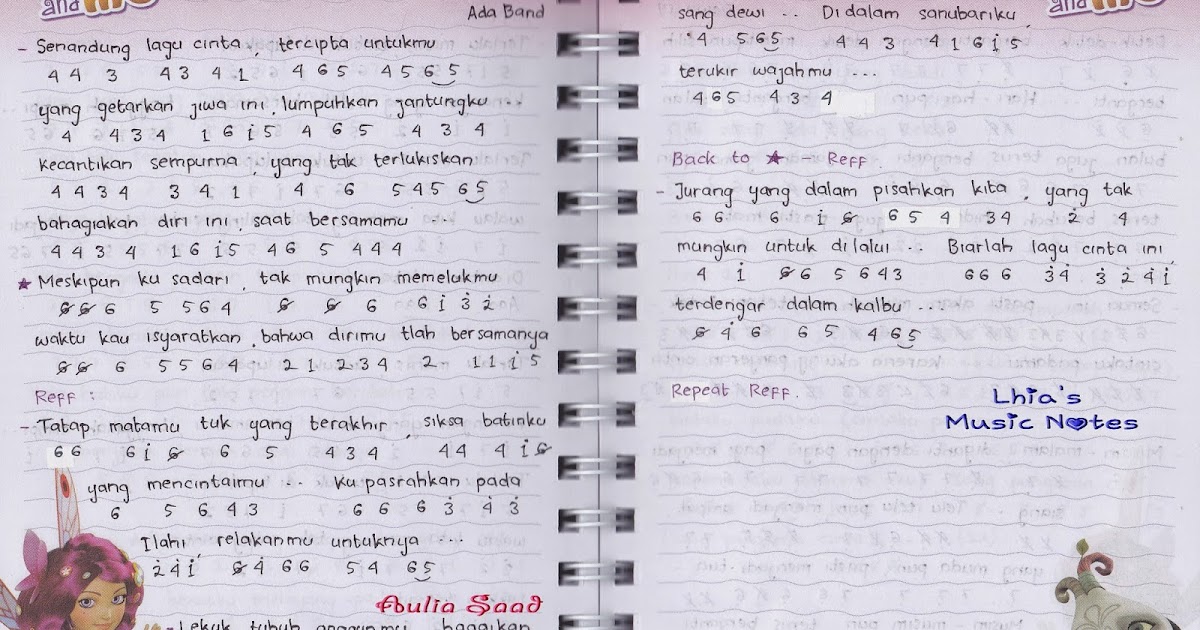 and
Ada Band
- Senandung lagu cinta, tercipta untukmu
4 4 3 4 3 4 1 4 6 5 4 5 6 5
yang getarkan jiwa ini, lumpuhkan jantungku ...
4 4 3 4 1 6 i 5 4 6 5 4 3 4
kecantikan sempurna, yang tak terlukiskan
4 4 3 4 3 4 1 4 6 5 4 5 6 5
bahagiakan diri ini, saat bersamamu ...
4 4 3 4 1 6 i 5 4 6 5 4 4 4
★ Meskipun ku sadari, tak mungkin memelukmu
6̸ 6̸ 6 5 5 6 4 6̸ 6̸ 6 6 i 3̇ 2̇
waktu kau isyaratkan, bahwa dirimu tlah bersamanya
6̸ 6̸ 6 5 5 6 4 2 1 2 3 4 2 1 1 i 5
Reff :
- Tatap matamu tuk yang terakhir, siksa batinku
6 6 6 i 6̸ 6 5 4 3 4 4 4 4 i 6̸
yang mencintaimu ... Ku pasrahkan pada
6 5 6 4 3 6 6 6 3̇ 4̇ 3̇
Ilahi, relakanmu untuknya ...
2̇ 4̇ i 6̸ 4̇ 6 6 5 4 6 5
Aulia Saad
- Lekuk tubuh anggunmu, bagaikan
and
sang dewi ... Di dalam sanubariku
4 5 6 5 4 4 3 4 1 6 i 5
terukir wajahmu ...
4 6 5 4 3 4
Back to ★ - Reff.
- Jurang yang dalam pisahkan kita, yang tak
6 6 6 i 6̸ 6 5 4 3 4 2̇ 4
mungkin untuk di lalui ... Biarlah lagu cinta ini,
4 i 6̸ 6 5 6 4 3 6 6 6 3̇ 4̇ 3̇ 2̇ 4̇ i
terdengar dalam kalbu ...
6̸ 4̇ 6 6 5 4 6 5
Repeat Reff.
Lhia's
Music Notes